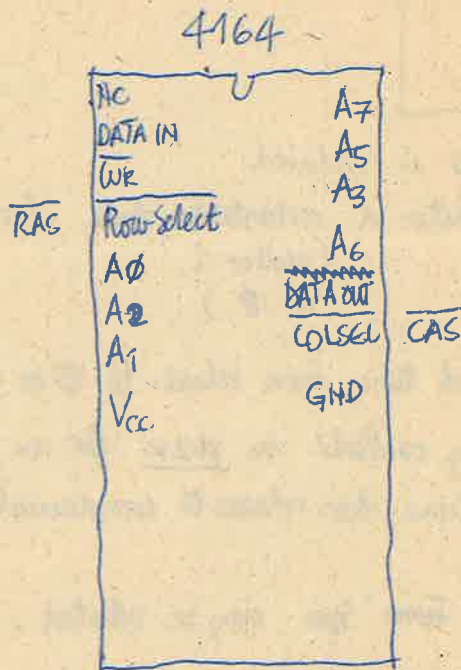 4164
NC
DATA IN
W̅R̅
R̅A̅S̅
R̅o̅w̅ ̅S̅e̅l̅e̅c̅t̅
AØ
A2
A1
Vcc
A7
A5
A3
A6
DATA OUT
C̅O̅L̅S̅E̅L̅
C̅A̅S̅
GND